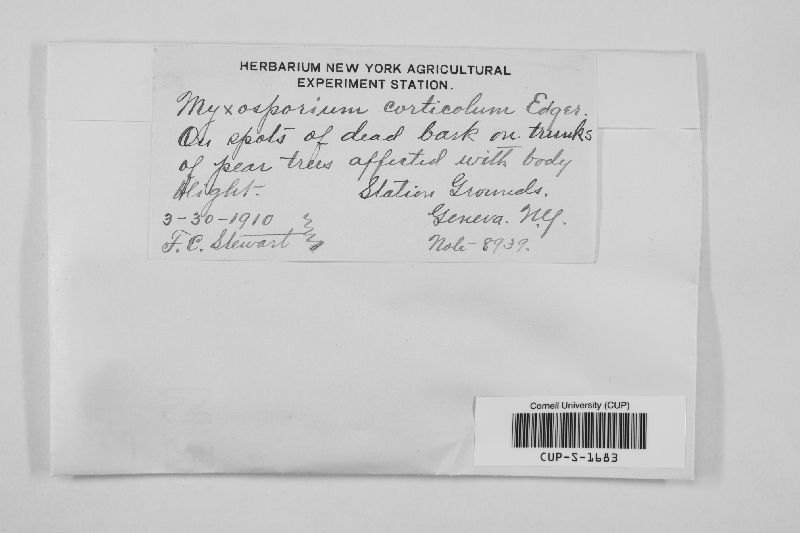 HERBARIUM NEW YORK AGRICULTURAL
EXPERIMENT STATION.
Myxosporium corticolum Edger.
On spots of dead bark on trunks
of pear trees affected with body
blight. Station Grounds.
3-30-1910 Geneva. N.Y.
F. C. Stewart Note-8939.
Cornell University (CUP)
CUP-S-1683